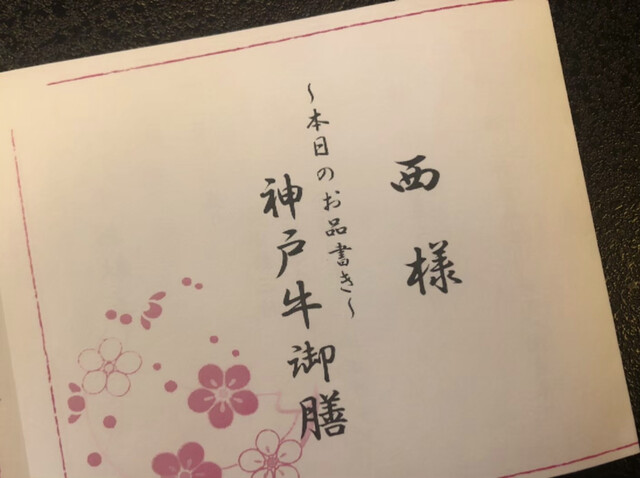 西様
～本日のお品書き～
神戸牛御膳